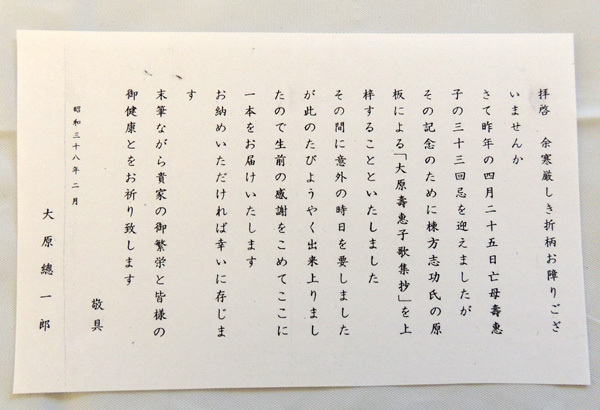 拝啓　余寒厳しき折柄お障りござ
いませんか
さて昨年の四月二十五日亡母壽惠
子の三十三回忌を迎えましたが
その記念のために棟方志功氏の原
板による「大原壽惠子歌集抄」を上
梓することといたしました
その間に意外の時日を要しました
が此のたびようやく出来上りまし
たので生前の感謝をこめてここに
一本をお届けいたします
お納めいただければ幸いに存じま
す
末筆ながら貴家の御繁栄と皆様の
御健康とをお祈り致します
敬具
昭和三十八年二月
大原總一郎